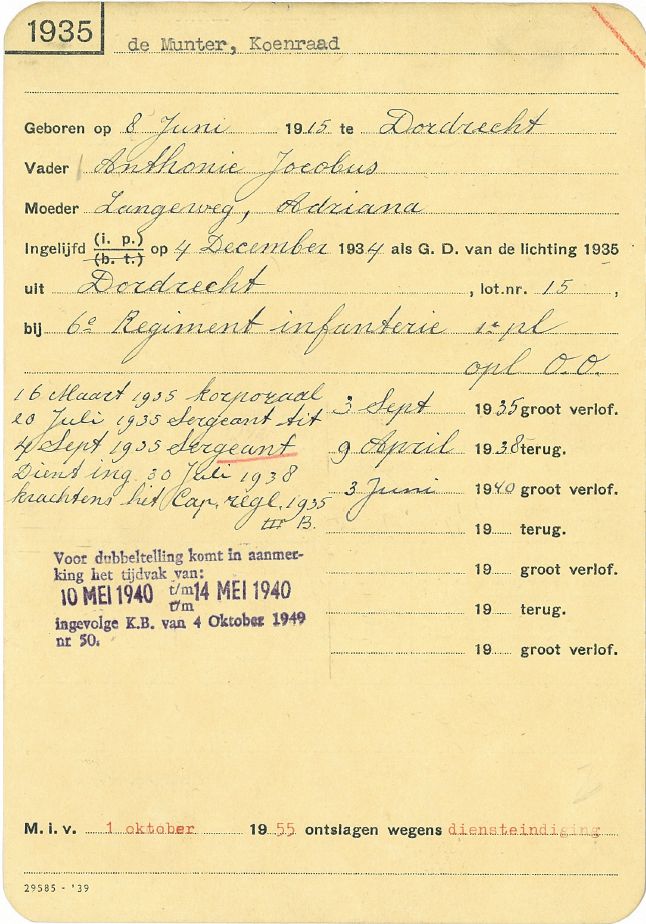 1935
de Munter, Koenraad
Geboren op 8 Juni 1915 te Dordrecht
Vader Anthonie Jocobus
Moeder Langeweg, Adriana
Ingelijfd (i. p.) (b. t.) op 4 December 1934 als G. D. van de lichting 1935
uit Dordrecht , lot.nr. 15 ,
bij 6e Regiment infanterie 1e pl
opl O.O.
16 Maart 1935 korporaal
20 Juli 1935 Sergeant tit
4 Sept 1935 Sergeant
Dienst ing. 30 Juli 1938
krachtens het Cap. regl. 1935
III B.
3 Sept 1935 groot verlof.
9 April 1938 terug.
3 Juni 1940 groot verlof.
19 terug.
19 groot verlof.
19 terug.
19 groot verlof.
Voor dubbeltelling komt in aanmer-
king het tijdvak van:
10 MEI 1940 t/m 14 MEI 1940
t/m
ingevolge K.B. van 4 Oktober 1949
nr 50.
M. i. v. 1 oktober 1955 ontslagen wegens diensteindiging
29585 - '39